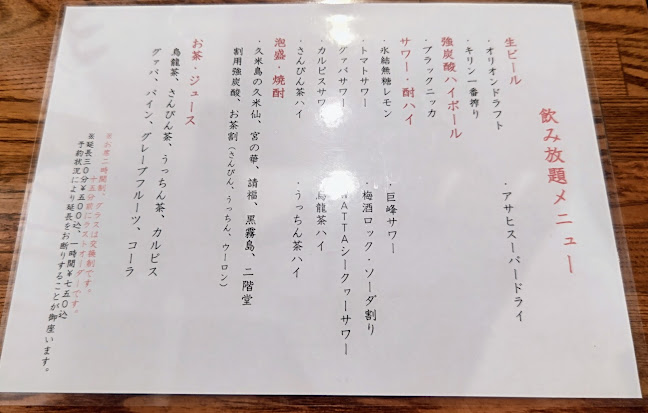 飲み放題メニュー
生ビール
・オリオンドラフト
・アサヒスーパードライ
・キリン一番搾り
強炭酸ハイボール
・ブラックニッカ
サワー・酎ハイ
・氷結無糖レモン
・巨峰サワー
・トマトサワー
・梅酒ロック・ソーダ割り
・グァバサワー
・WATTAシークヮーサワー
・カルピスサワー
・烏龍茶ハイ
・さんぴん茶ハイ
・うっちん茶ハイ
泡盛・焼酎
・久米島の久米仙、宮の華、請福、黒霧島、二階堂
割用強炭酸、お茶割(さんぴん、うっちん、ウーロン)
お茶・ジュース
烏龍茶、さんぴん茶、うっちん茶、カルピス
グァバ、パイン、グレープフルーツ、コーラ
二時間制、グラスは交換制です。
十五分前にラストオーダーです。
※延長三0分¥五00込、一時間¥七五0込
予約状況により延長をお断りすることが御座います。